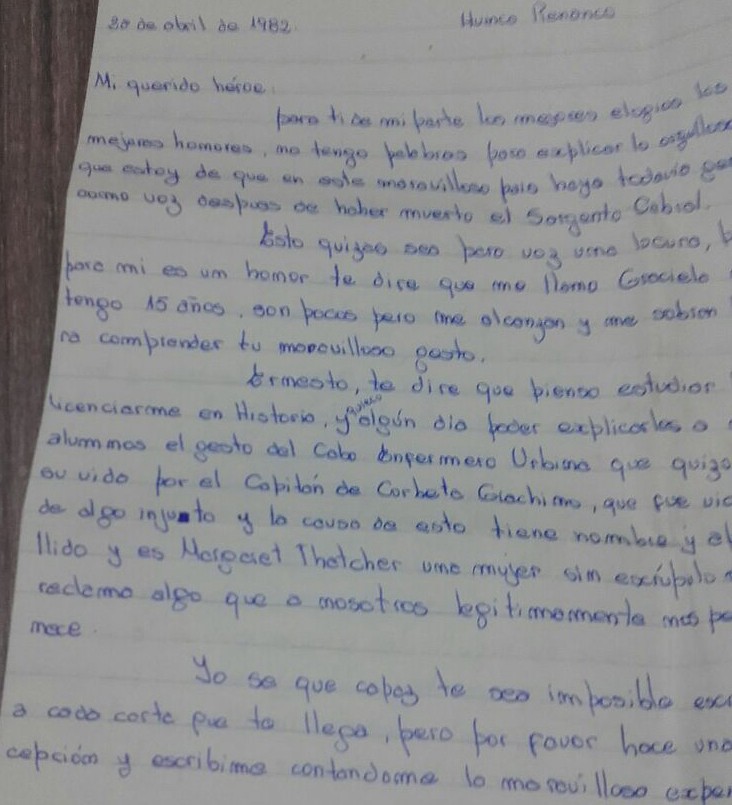 30 de abril de 1982. Huinca Renanco
Mi querido héroe.
para ti de mi parte los mejores elogios los
mejores homores, no tengo palabras para explicar lo orgullosa
que estoy de que en este maravilloso pais haya todavia
como voz despues de haber muerto el Sargento Cabral.
Esto quizas sea para voz una locura,
para mi es un homor te dire que me llamo Graciela
tengo 15 años, son pocos pero me alcanzan y me sobran
ra comprender tu maravilloso gesto.
Ernesto, te dire que pienso estudiar
licenciarme en Historia, y quiero algún dia poder explicarles a
alumnos el gesto del Cabo Enfermero Urbina que quiso
su vida por el Capitán de Corbeta Giachino, que fue vic
de algo injusto y la causa de esto tiene nombre y el
llido y es Margaret Thatcher una mujer sin escrúpulo
reclama algo que a nosotros legitimamente nos pe
nece.
Yo se que capaz te sea imposible esc
a cada carta que te llega, pero por favor hace una
cepción y escribime contandome la maravillosa exper